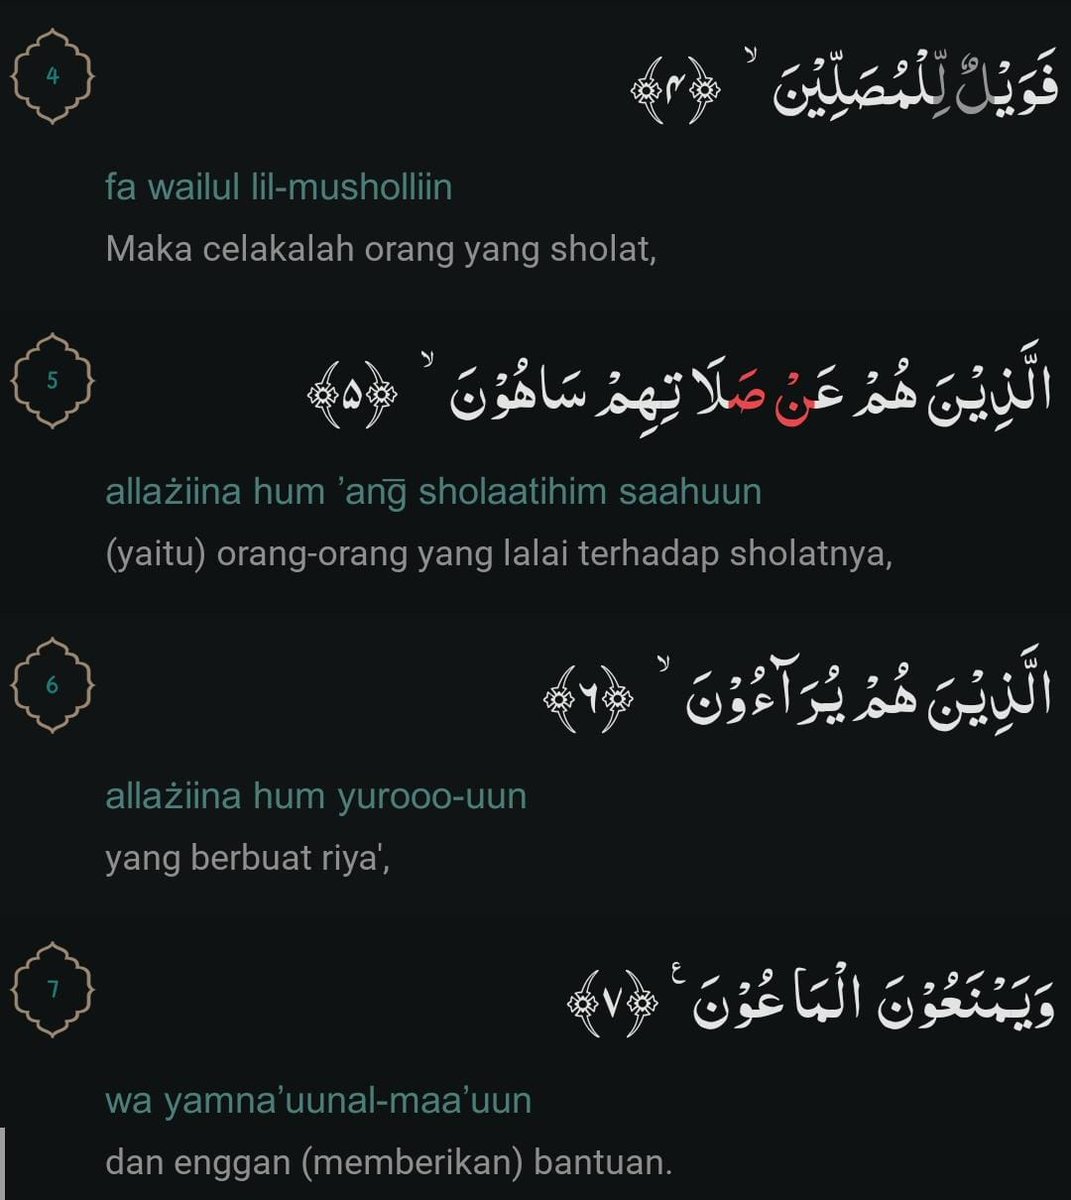 4
فَوَيْلٌ لِّلْمُصَلِّيْنَ ۙ ﴿۴﴾
fa wailul lil-musholliin
Maka celakalah orang yang sholat,
5
الَّذِيْنَ هُمْ عَنْ صَلَاتِهِمْ سَاهُوْنَ ۙ ﴿۵﴾
allażiina hum ’ang̅ sholaatihim saahuun
(yaitu) orang-orang yang lalai terhadap sholatnya,
6
الَّذِيْنَ هُمْ يُرَآءُوْنَ ۙ ﴿۶﴾
allażiina hum yurooo-uun
yang berbuat riya',
7
وَيَمْنَعُوْنَ الْمَاعُوْنَ ࣖ ﴿۷﴾
wa yamna’uunal-maa’uun
dan enggan (memberikan) bantuan.